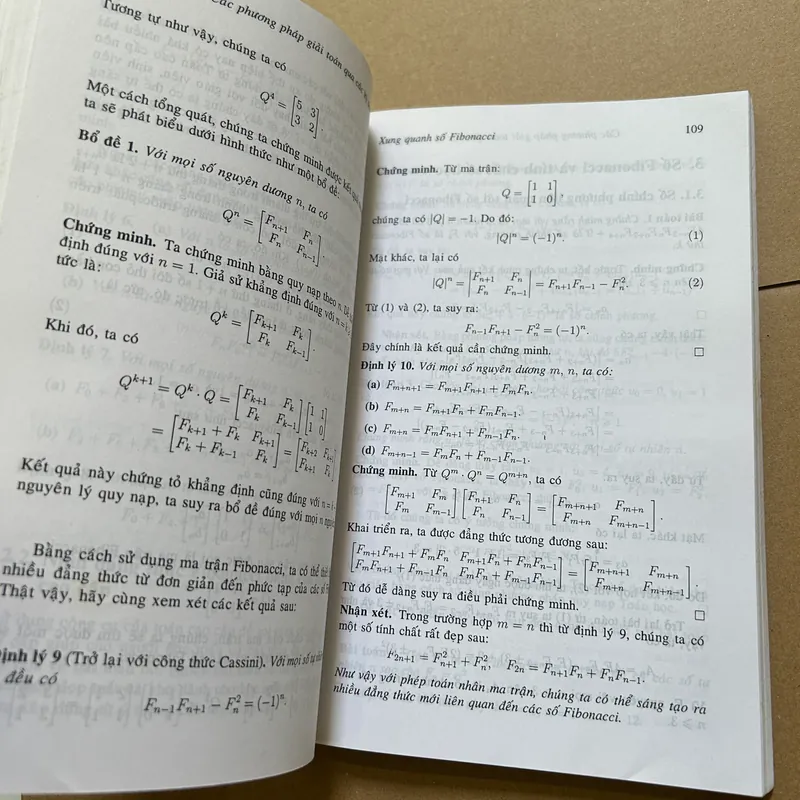 Các phương pháp giải toán qua các
Tương tự như vậy, chúng ta có
Q^4 = [5 3; 3 2].
Một cách tổng quát, chúng ta chứng minh được kết quả
ta sẽ phát biểu dưới hình thức như một bổ đề:
Bổ đề 1. Với mọi số nguyên dương n, ta có
Q^n = [F_{n+1} F_n; F_n F_{n-1}].
Chứng minh. Ta chứng minh bằng quy nạp theo n.
định đúng với n = 1. Giả sử khẳng định đúng với n = k
tức là:
Q^k = [F_{k+1} F_k; F_k F_{k-1}].
Khi đó, ta có
Q^{k+1} = Q^k · Q = [F_{k+1} F_k; F_k F_{k-1}] [1 1; 1 0]
= [F_{k+1} + F_k F_{k+1}; F_k + F_{k-1} F_k] = [F_{k+2} F_{k+1}; F_{k+1} F_k]
Kết quả này chứng tỏ khẳng định cũng đúng với n =
nguyên lý quy nạp, ta suy ra bổ đề đúng với mọi n
Bằng cách sử dụng ma trận Fibonacci, ta có thể
nhiều đẳng thức từ đơn giản đến phức tạp của các số
Thật vậy, hãy cùng xem xét các kết quả sau:
Định lý 9 (Trở lại với công thức Cassini). Với mọi số
đều có
F_{n-1}F_{n+1} − F_n^2 = (−1)^n.
Xung quanh số Fibonacci 109
Chứng minh. Từ ma trận:
Q = [1 1; 1 0],
chúng ta có |Q| = −1. Do đó:
|Q|^n = (−1)^n. (1)
Mặt khác, ta lại có
|Q|^n = |F_{n+1} F_n; F_n F_{n-1}| = F_{n+1}F_{n-1} − F_n^2. (2)
Từ (1) và (2), ta suy ra:
F_{n-1}F_{n+1} − F_n^2 = (−1)^n.
Đây chính là kết quả cần chứng minh. □
Định lý 10. Với mọi số nguyên dương m, n, ta có:
(a) F_{m+n+1} = F_{m+1}F_{n+1} + F_mF_n.
(b) F_{m+n} = F_{m+1}F_n + F_mF_{n-1}.
(c) F_{m+n} = F_mF_{n+1} + F_{m-1}F_n.
(d) F_{m+n-1} = F_mF_n + F_{m-1}F_{n-1}.
Chứng minh. Từ Q^m · Q^n = Q^{m+n}, ta có
[F_{m+1} F_m; F_m F_{m-1}] [F_{n+1} F_n; F_n F_{n-1}] = [F_{m+n+1} F_{m+n}; F_{m+n} F_{m+n-1}].
Khai triển ra, ta được đẳng thức tương đương sau:
[F_{m+1}F_{n+1} + F_mF_n F_{m+1}F_n + F_mF_{n-1}; F_mF_{n+1} + F_{m-1}F_n F_mF_n + F_{m-1}F_{n-1}] = [F_{m+n+1} F_{m+n}; F_{m+n} F_{m+n-1}].
Từ đó dễ dàng suy ra điều phải chứng minh. □
Nhận xét. Trong trường hợp m = n thì từ định lý 9, chúng ta có
một số tính chất rất đẹp sau:
F_{2n+1} = F_{n+1}^2 + F_n^2, F_{2n} = F_{n+1}F_n + F_nF_{n-1}.
Như vậy với phép toán nhân ma trận, chúng ta có thể sáng tạo ra
nhiều đẳng thức mới liên quan đến các số Fibonacci.